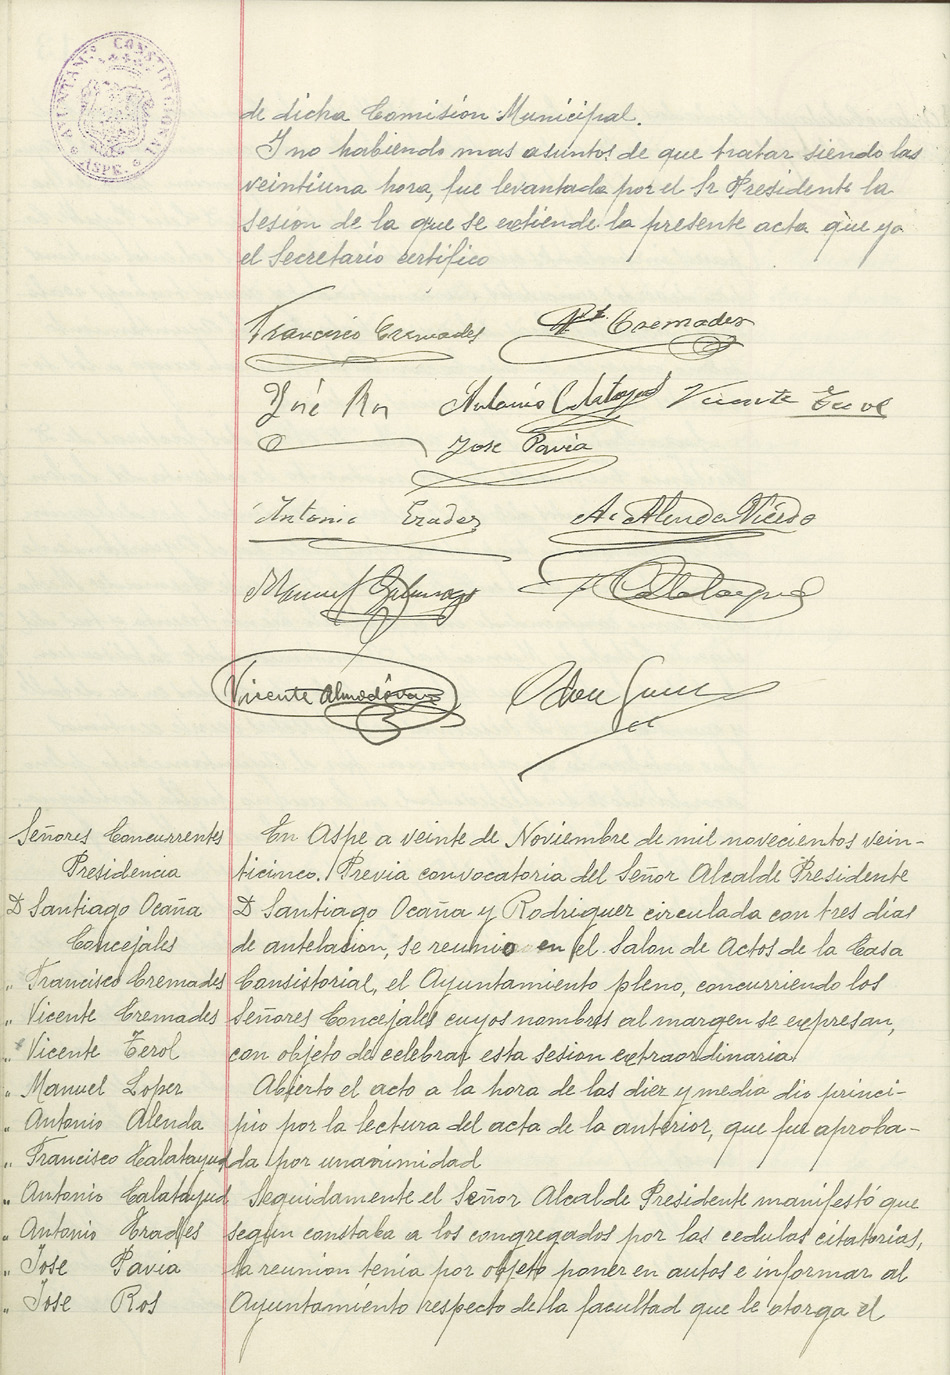 AYUNTAM.º CONSTITUCIONAL
ASPE
de dicha Comisión Municipal.
Y no habiendo mas asuntos de que tratar siendo las
veintiuna hora, fue levantada por el Sr Presidente la
sesión de la que se extiende la presente acta que yo
el Secretario certifico
Francisco Cremades Vte. Cremades
José Ros Antonio Calatayud Vicente Terol
Jose Pavia
Antonio Erades A. Alenda
Manuel F. Calatayud
Vicente Almodóvar
Señores Concurrentes
Presidencia
D Santiago Ocaña
Concejales
„ Francisco Cremades
„ Vicente Cremades
„ Vicente Terol
„ Manuel Loper
„ Antonio Alenda
„ Francisco Calatayud
„ Antonio Calatayud
„ Antonio Erades
„ Jose Pavia
„ Jose Ros
En Aspe a veinte de Noviembre de mil novecientos vein-
ticinco. Previa convocatoria del Señor Alcalde Presidente
D Santiago Ocaña y Rodriguer circulada con tres dias
de antelación, se reunio en el Salon de Actos de la Casa
Consistorial, el Ayuntamiento pleno, concurriendo los
Señores Concejales cuyos nombres al margen se expresan,
con objeto de celebrar esta sesion extraordinaria.
Abierto el acto a la hora de las dier y media dio princi-
pio por la lectura del acta de la anterior, que fue aproba-
da por unanimidad
Seguidamente el Señor Alcalde Presidente manifestó que
segun constaba a los congregados por las cedulas citatorias,
la reunion tenia por objeto poner en autos e informar al
Ayuntamiento respecto de la facultad que le otorga el